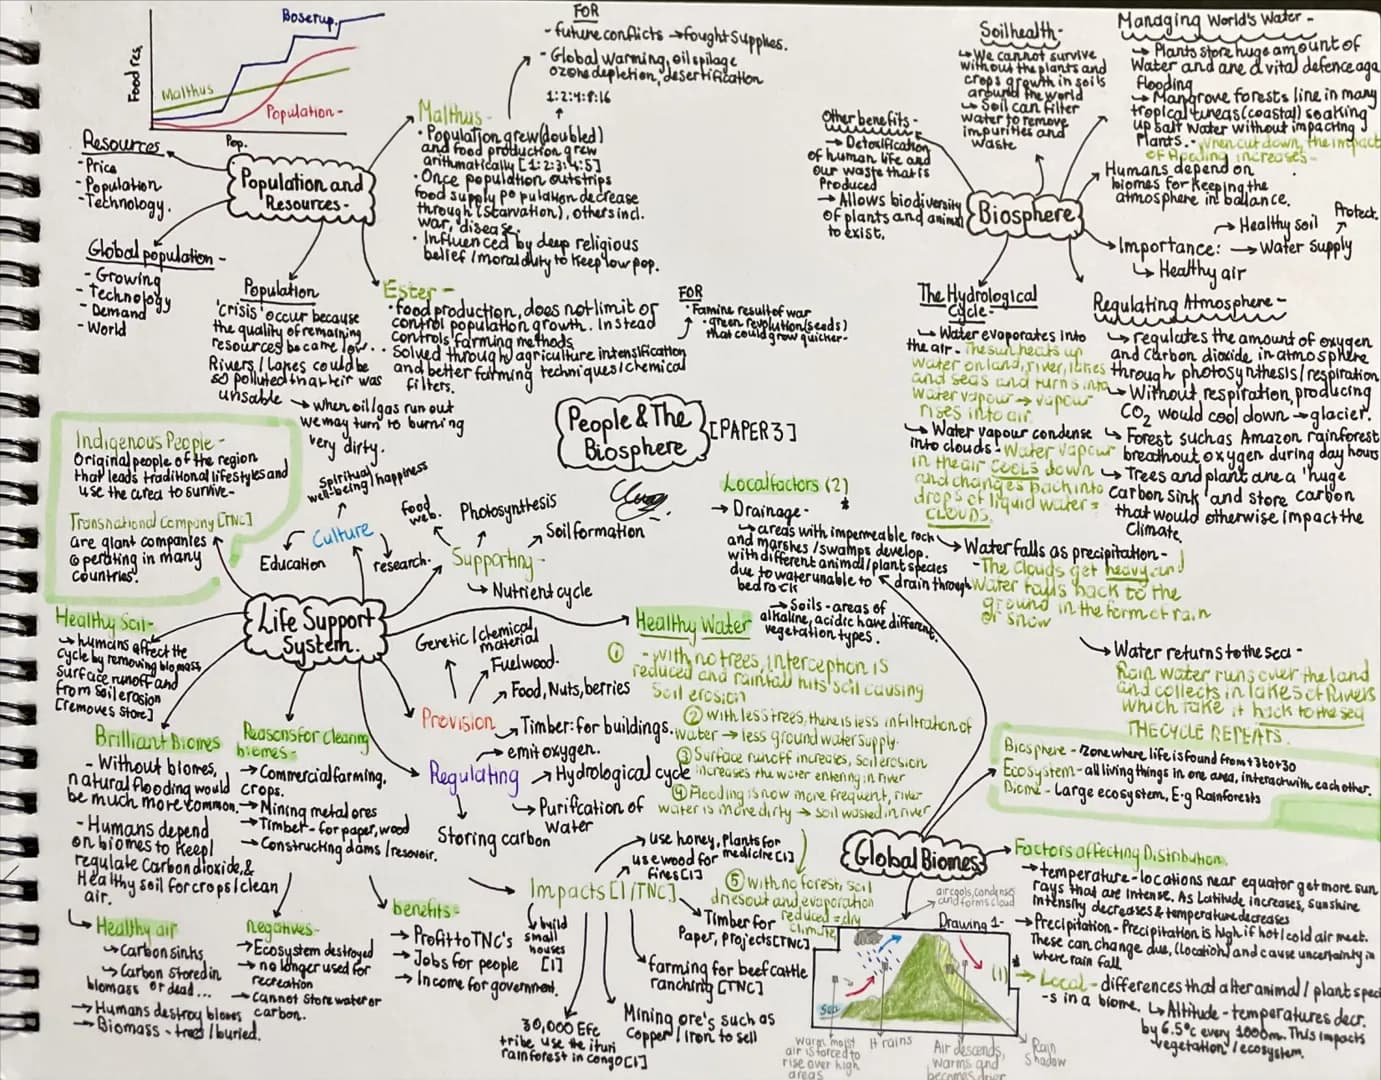 Boserup.
Food res,
Malthus
Population-
Pop.
FOR
- future conflicts → fought supplies.
- Global warming, oil spilage
ozone depletion, desertification
1:2:4:8:16
Malthus -
• Population grew (doubled)
and food production grew
arithmatically [1:2:3:4:5]
• Once population outstrips
food supply population decrease
through (starvation), others incl.
war, disease.
• Influenced by deep religious
belief / moral duty to keep low pop.
Resources
- Price
- Population
- Technology.
Population and
Resources-
Global population -
- Growing
- Technology
- Demand
- World
Population
'crisis' occur because
the quality of remaining
resources became low..
Rivers / Lakes could be
so polluted that eir was
unsable → when oil/gas run out
we may turn to burning
very dirty.
Ester -
• food production, does not limit or
control population growth. Instead
controls farming methods
• Solved through agriculture intensification
and better farming techniques / chemical
filters.
FOR
• Famine result of war
• green revolution (seeds)
that could grow quicker-
People & The
Biosphere
[PAPER 3]
Soil health-
↳ We cannot survive
without the plants and
crops growth in soils
around the world
↳ Soil can filter
water to remove
impurities and
waste
Managing World's Water -
→ Plants store huge amount of
Water and are a vital defence aga
flooding
→ Mangrove forests line in many
tropical (coastal) soaking
up salt water without impacting
Plants. - when cut down, the impact
of flooding increases -
Other benefits -
→ Detoxification
of human life and
our waste that is
Produced
→ Allows biodiversity
of plants and animal
to exist.
Biosphere
Humans depend on
biomes for keeping the
atmosphere in balance.
Protect.
Importance:
→ Healthy soil
→ Water supply
↳ Healthy air
The Hydrological
Cycle-
↳ Water evaporates into
the air - The sun heats up
water on land, river, lakes
and seas and turns into
water vapour → vapour
rises into air.
↳ Water vapour condense
into clouds - Water vapour
in the air cools down
and changes back into
drops of liquid water =
CLOUDS.
Water falls as precipitation -
- The clouds get heavy and
water falls back to the
ground in the form of rain
or snow
→ Water returns to the sea -
Rain water runs over the land
and collects in lakes of Rivers
which take it back to the sea
THE CYCLE REPEATS.
Regulating Atmosphere -
↳ regulates the amount of oxygen
and carbon dioxide in atmosphere
through photosynthesis / respiration
↳ Without respiration, producing
CO2 would cool down → glacier.
↳ Forest such as Amazon rainforest
breathout oxygen during day hours
↳ Trees and plant are a 'huge
Carbon sink' and store carbon
that would otherwise impact the
Climate.
Indigenous People -
Original people of the region
that leads traditional lifestyles and
use the area to survive-
Transnational Company [TNC]
are giant companies
operating in many
countries.
Spiritual
well-being / happiness
Culture
Education
research.
food
web.
Photosynthesis
Soil formation
Supporting -
↳ Nutrient cycle
Life Support
System.
Healthy Soil-
↳ humans affect the
cycle by removing biomass
Surface runoff and
from soil erosion
[removes store]
Genetic / chemical
material
Fuelwood.
Food, Nuts, berries
Provision
Timber: for buildings.
emit oxygen.
Regulating
Hydrological cycle
Purification of
Water
Storing carbon
Healthy Water
① - with no trees, interception is
reduced and rainfall hits soil causing
Soil erosion
② with less trees, there is less infiltration of
water → less ground water supply.
③ Surface runoff increases, soil erosion
increases the water entering in river
④ Flooding is now more frequent, river
water is more dirty → soil wasted in river
⑤ with no forest, soil
dries out and evaporation
reduced = dry
climate
Local factors (2)
→ Drainage -
↳ areas with impermeable rock
and marshes / swamps develop.
with different animal / plant species
due to water unable to drain through
bedrock
→ Soils - areas of
alkaline, acidic have different
vegetation types.
Brilliant Biomes
- Without biomes,
natural flooding would
be much more common.
- Humans depend
on biomes to keep /
regulate Carbon dioxide, &
Healthy soil for crops / clean
air.
Reasons for clearing
biomes -
→ Commercial farming.
crops.
→ Mining metal ores
→ Timber - for paper, wood
→ Constructing dams / resovoir.
Healthy air
↳ Carbon sinks
↳ Carbon stored in
biomass or dead...
→ Humans destroy biomes
→ Biomass - tred / buried.
negatives -
→ Ecosystem destroyed
→ no longer used for
recreation
→ Cannot store water or
carbon.
benefits -
→ Profit to TNC's
→ Jobs for people
→ Income for government.
Impacts [I/TNC]
use honey, plants for
medicine [I]
use wood for
fires [I]
↳ build
small
houses
[I]
Timber for
Paper, projects [TNC]
farming for beef cattle
ranching [TNC]
Mining ore's such as
Copper / Iron to sell
30,000 Efe
tribe use the ituri
rainforest in congo [I]
Biosphere - zone where life is found from +3 to +30
Ecosystem - all living things in one area, interact with each other.
Biome - Large ecosystem, E.g Rainforests
Global Biomes
Factors affecting Distribution.
→ temperature - locations near equator get more sun
rays that are intense. As Latitude increases, sunshine
intensity decreases & temperature decreases
→ Precipitation - Precipitation is high if hot / cold air meet.
These can change due, (location) and cause uncertainty in
where rain fall
(1) → Local - differences that alter animal / plant speci
-s in a biome. ↳ Altitude - temperatures decr.
by 6.5°c every 1000m. This impacts
vegetation / ecosystem.
Drawing 1-
air cools, condenses
and forms cloud
Sea
warm moist
air is forced to
rise over high
areas
It rains
Air descends,
warms and
becomes drier
Rain
Shadow